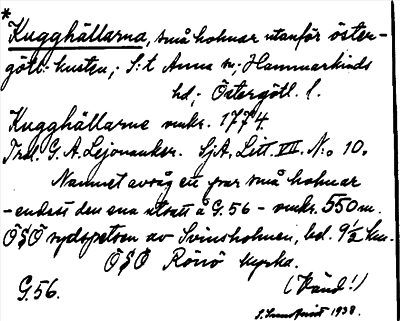 *
Kugghällarna, små holmar utanför öster-
götl. kusten; S:t Anna sn; Hammarkinds
hd; Östergötl. l.
Kugghällarne omkr. 1774.
Trol. G. A. Lejonanker. SjA. Litt VII. N:o 10.
Namnet avsåg ett par små holmar
-endast den ena utsatt å G.56 - omkr. 550 m.
ÖSÖ sydspetsen av Svinsholmen, bel. 9½ km.
ÖSÖ Rönö kyrka.
G.56. (Känd!)
1938.